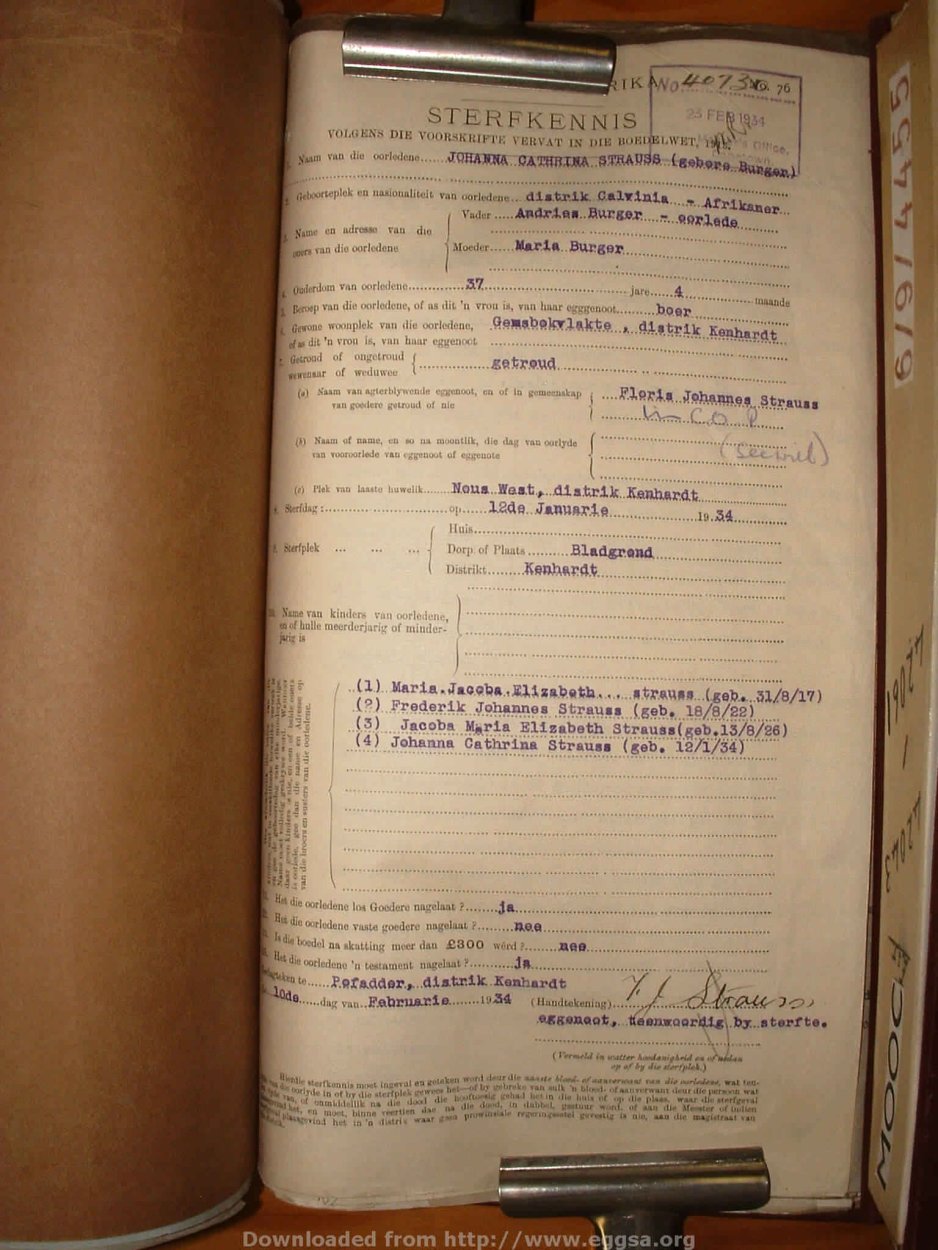 RIKA No. 76
No. 4073
23 FEB 1934
Office,
STERFKENNIS
VOLGENS DIE VOORSKRIFTE VERVAT IN DIE BOEDELWET,
1. Naam van die oorledene JOHANNA CATHRINA STRAUSS (gebore Burger)
2. Geboorteplek en nasionaliteit van oorledene distrik Calvinia - Afrikaner
3. Name en adresse van die ouers van die oorledene
Vader Andries Burger - oorlede
Moeder Maria Burger
4. Ouderdom van oorledene 37 jare 4 maande
5. Beroep van die oorledene, of as dit 'n vrou is, van haar egggenoot boer
6. Gewone woonplek van die oorledene, Gemsbokvlakte , distrik Kenhardt
of as dit 'n vrou is, van haar eggenoot
7. Getroud of ongetroud getroud
wewenaar of weduwee
(a) Naam van agterblywende eggenoot, en of in gemeenskap Floris Johannes Strauss
van goedere getroud of nie in C.O.P.
(b) Naam of name, en so na moontlik, die dag van oorlyde (See will)
van vooroorlede van eggenoot of eggenote
(c) Plek van laaste huwelik Nous West, distrik Kenhardt
8. Sterfdag : op 12de Januarie 19 34
9. Sterfplek ... ... ...
Huis
Dorp of Plaats Bladgrond
Distrikt Kenhardt
10. Name van kinders van oorledene,
en of hulle meerderjarig of minder-
jarig is
(1) Maria Jacoba Elizabeth... strauss (geb. 31/8/17)
(2) Frederik Johannes Strauss (geb. 18/8/22)
(3) Jacoba Maria Elizabeth Strauss(geb.13/8/26)
(4) Johanna Cathrina Strauss (geb. 12/1/34)
Het die oorledene los Goedere nagelaat ? ja
Het die oorledene vaste goedere nagelaat ? nee
Is die boedel na skatting meer dan £300 wêrd ? nee
Het die oorledene 'n testament nagelaat ? ja
te Pofadder, distrik Kenhardt
10de dag van Februarie 19 34 (Handtekening) F. J. Strauss
eggenoot, teenwoordig by sterfte.
(Vermeld in watter hoedanigheid en of
op of by die sterfplek.)
Hierdie sterfkennis moet ingeval en geteken word deur die naaste bloed- of aanverwant van die oorledene, wat ten-
die oorlyde in of by die sterfplek gewees het—of by gebreke van sulk 'n bloed- of aanverwant deur die persoon wat
van, of onmiddellik na die dood die hooftoesig gehad het in die huis of op die plaas, waar die sterfgeval
het, en moet, binne veertien dae na die dood, in dubbel, gestuur word, of aan die Meester of indien
plaasgevind het in 'n distrik waar geen provinsiale regeringsetel gevestig is nie, aan die magistraat van
MOOC 6/9
Downloaded from http://www.eggsa.org